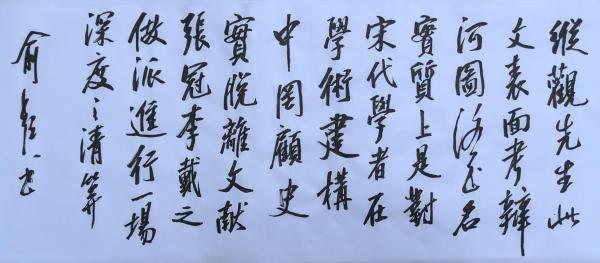 縱觀先生此
文表面考辯
河圖洛書名
實質上是對
宋代學者在
學術建構
中罔顧史
實脫離文献
張冠李戴之
做派進行一場
深度之清筭
俞